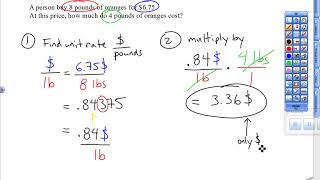 A person buy 8 pounds of oranges for $6.75
At this price, how much do 4 pounds of oranges cost?
1 Find unit rate $ / pounds
$ / lb = 6.75$ / 8 lbs
= .84375
= .84$ / lb
2 multiply by
.84$ / lb · 4 lbs / 1
= 3.36$
only $